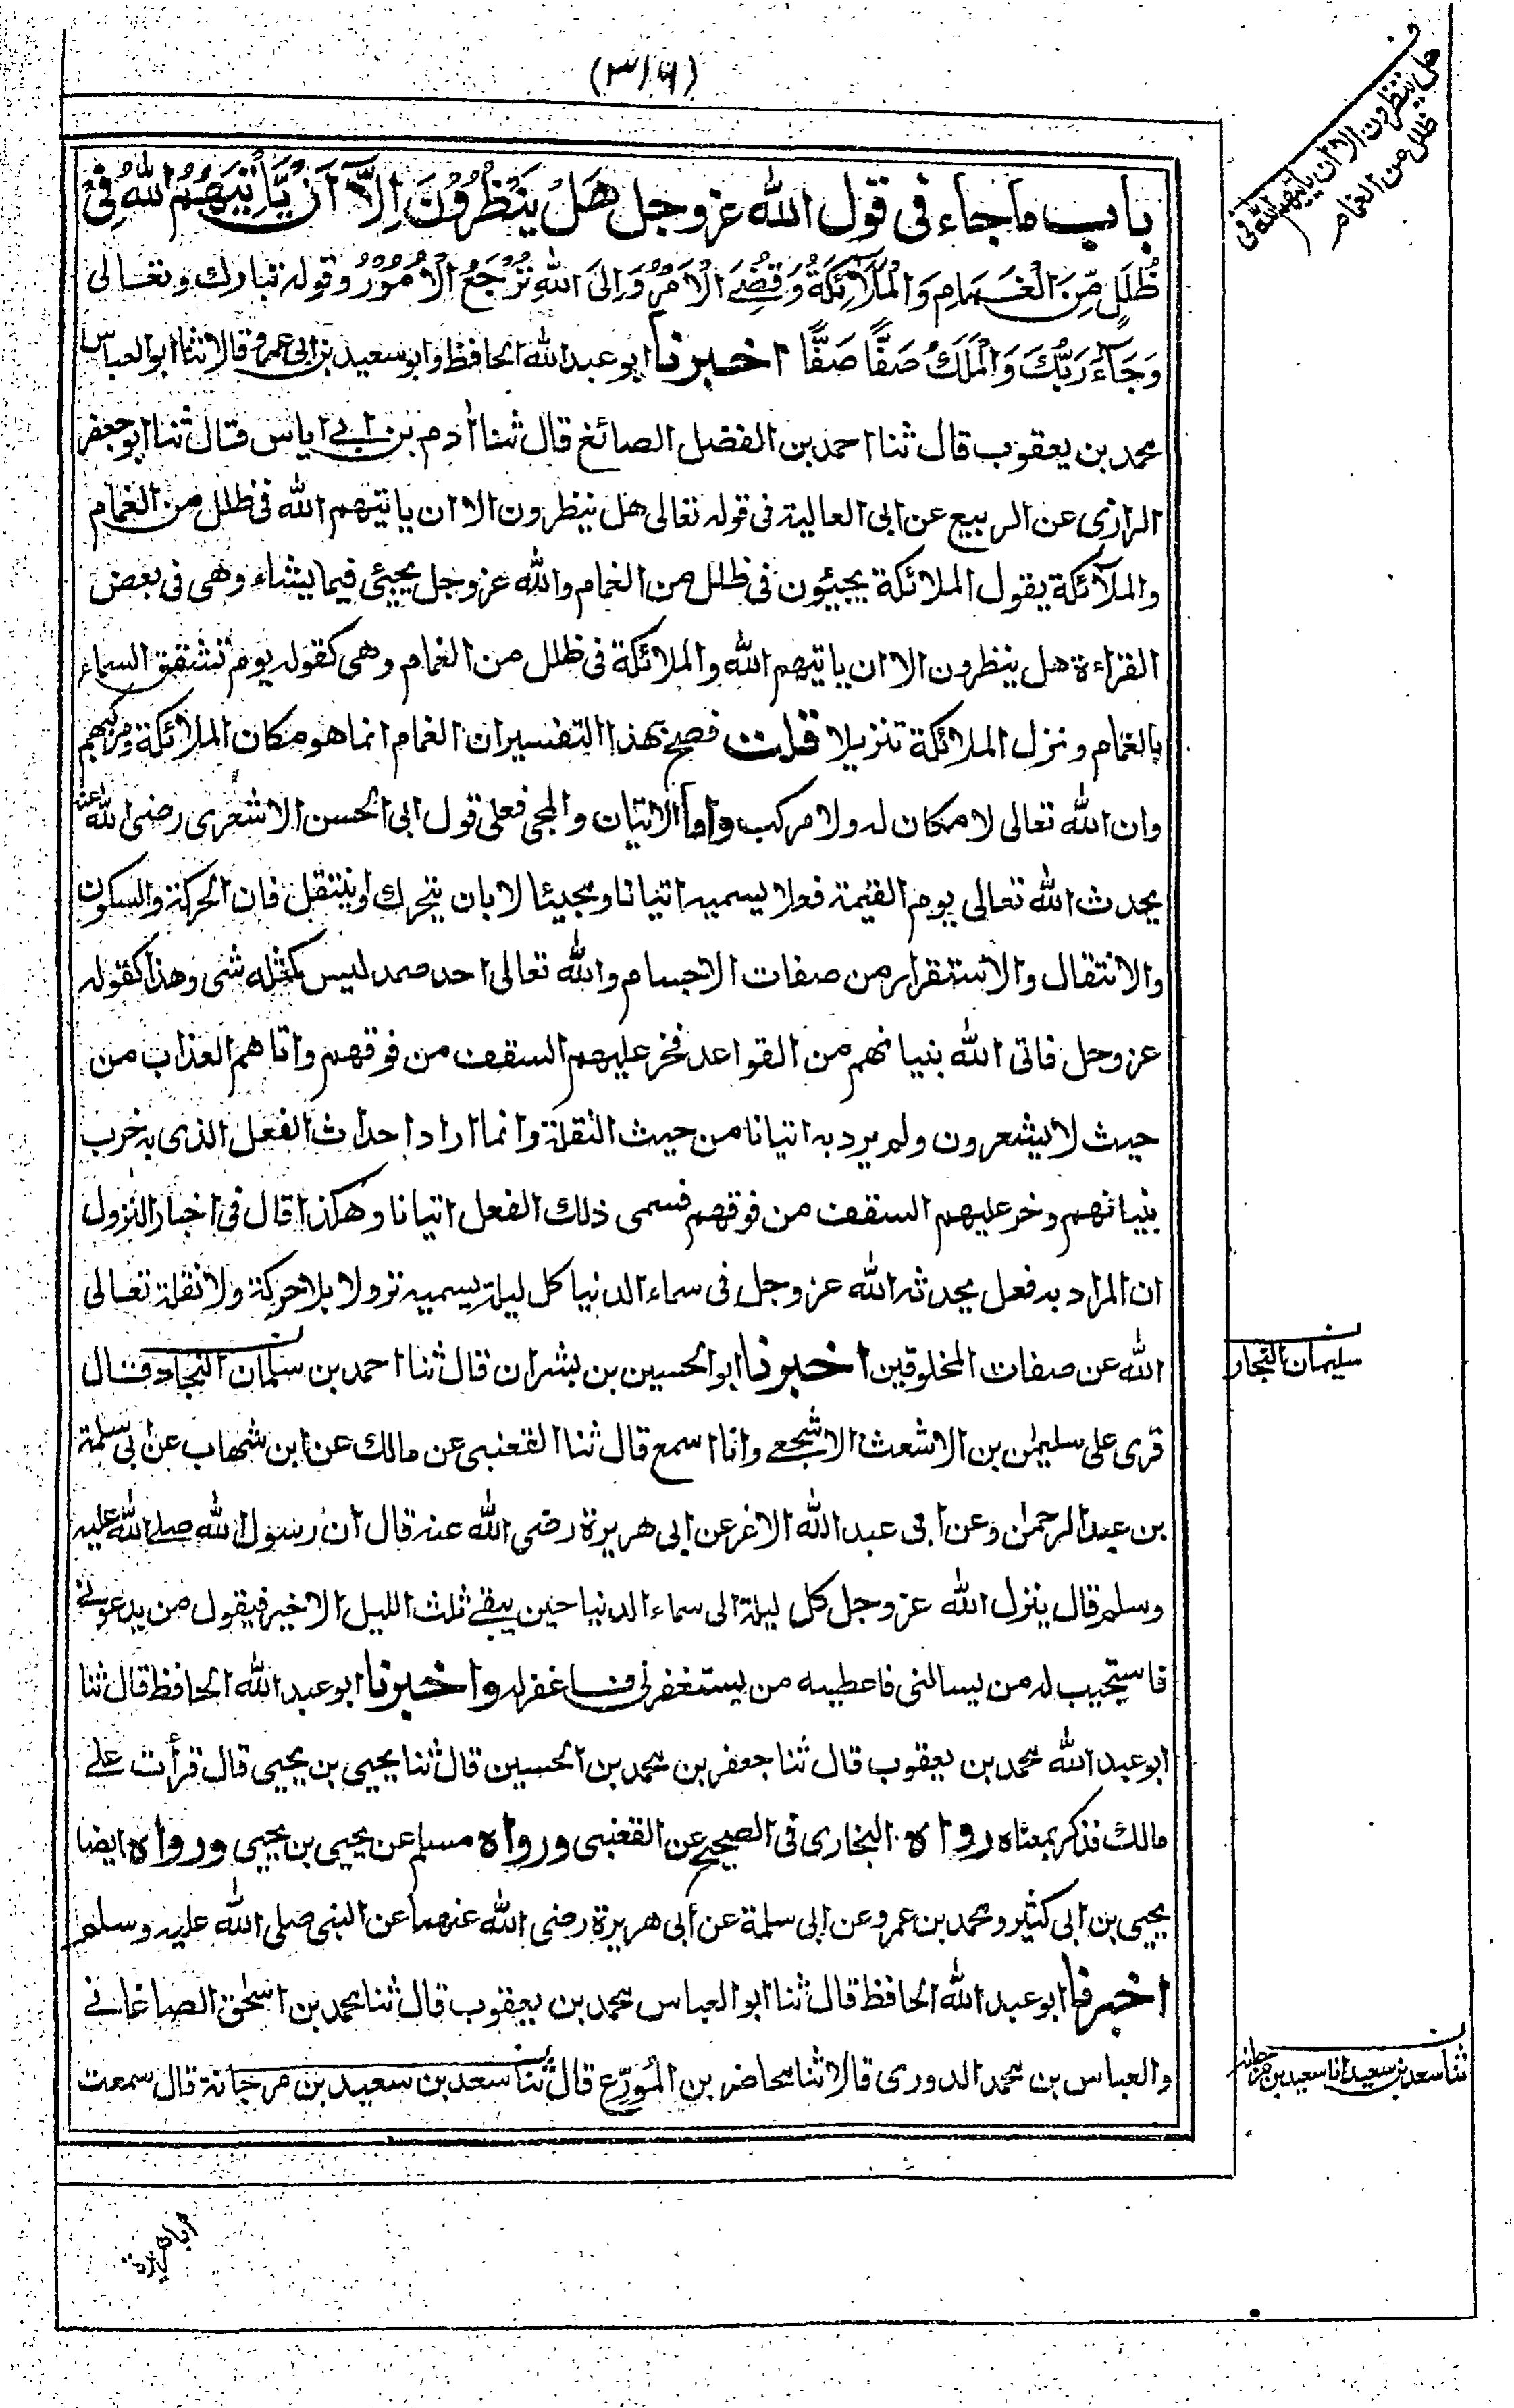 (٣١٦)
ف
هل ينظرون الا ان ياتيهم الله فى
ظلل من الغمام
باب ما جاء فى قول الله عزوجل هَلْ يَنْظُرُوْنَ اِلَّآ اَنْ يَّأْتِيَهُمُ اللهُ فِىْ
ظُلَلٍ مِّنَ الْغَمَامِ وَالْمَلَآئِكَةُ وَقُضِىَ الْاَمْرُ وَاِلَى اللهِ تُرْجَعُ الْاُمُوْرُ وقوله تبارك وتعالى
وَجَآءَ رَبُّكَ وَالْمَلَكُ صَفًّا صَفًّا اخبرنا ابو عبد الله الحافظ وابو سعيد بن ابى عمرو قالا ثنا ابو العباس
محمد بن يعقوب قال ثنا احمد بن الفضل الصائغ قال ثنا أدم بن ابى اياس قال ثنا ابو جعفر
الرازى عن الربيع عن ابى العالية فى قوله تعالى هل ينظرون الا ان ياتيهم الله فى ظلل من الغمام
والملآئكة يقول الملائكة يجيئون فى ظلل من الغمام والله عزوجل يجيئى فيما يشاء وهى فى بعض
القراءة هل ينظرون الا ان ياتيهم الله والملائكة فى ظلل من الغمام وهى كقوله يوم تشقق السماء
بالغمام ونزل الملائكة تنزيلا قلت فصح بهذا التفسير ان الغمام انما هو مكان الملائكة ومركبهم
وان الله تعالى لا مكان له ولا مركب واما الاتيان والمجى فعلى قول ابى الحسن الاشعرى رضى الله عنه
يحدث الله تعالى يوم القيمة فعلا يسميه اتيانا ومجيئا لا بان يتحرك او ينتقل فان الحركة والسكون
والانتقال والاستقرار من صفات الاجسام والله تعالى احد صمد ليس كمثله شى وهذا كقوله
عزوجل فاتى الله بنيانهم من القواعد فخر عليهم السقف من فوقهم واتاهم العذاب من
حيث لا يشعرون ولم يرد به اتيانا من حيث النقلة وانما اراد احداث الفعل الذى به خرب
بنيانهم وخر عليهم السقف من فوقهم فسمى ذلك الفعل اتيانا وهكذا قال فى اخبار النزول
ان المراد به فعل يحدثه الله عزوجل فى سماء الدنيا كل ليلة يسميه نزولا بلا حركة ولا نقلة تعالى
الله عن صفات المخلوقين اخبرنا ابو الحسين بن بشران قال ثنا احمد بن سلمان النجاد قال
ن
سليمان النجار
قرى على سليمٰن بن الاشعث الاشجعى وانا اسمع قال ثنا القعنبى عن مالك عن ابن شهاب عن ابى سلمة
بن عبد الرحمٰن وعن ابى عبد الله الاغر عن ابى هريرة رضى الله عنه قال ان رسول الله صلى الله عليه
وسلم قال ينزل الله عزوجل كل ليلة الى سماء الدنيا حين يبقى ثلث الليل الاخير فيقول من يدعونى
فاستجيب له من يسالنى فاعطيه من يستغفرنى فاغفر له واخبرنا ابو عبد الله الحافظ قال ثنا
ابو عبد الله محمد بن يعقوب قال ثنا جعفر بن محمد بن الحسين قال ثنا يحيى بن يحيى قال قرأت على
مالك فذكر بمعناه رواه البخارى فى الصحيح عن القعنبى ورواه مسلم عن يحيى بن يحيى ورواه ايضا
يحيى بن ابى كثير ومحمد بن عمرو عن ابى سلمة عن ابى هريرة رضى الله عنهما عن النبى صلى الله عليه وسلم
اخبرنا ابو عبد الله الحافظ قال ثنا ابو العباس محمد بن يعقوب قال ثنا محمد بن اسحٰق الصاغانى
والعباس بن محمد الدورى قالا ثنا محاضر بن المُوَرِّع قال ثنا سعد بن سعيد بن مرجانة قال سمعت
ن
ثنا سعد بن سعيد انا سعيد بن مرجانة
اباهريرة